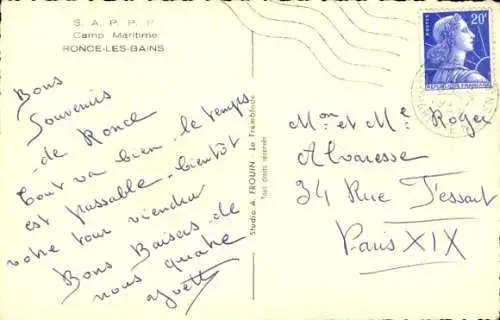 S. A. P. P. P
Camp Maritime
RONCE-LES-BAINS
Bons
Souvenirs
de Ronce
Tout va bien. le temps
est passable. bientôt
votre tour viendra
Bons Baisers de
nous quatre
Yvette
Studio A. FROUIN, La Tremblade
Tous droits réservés
20F
POSTES
REPUBLIQUE FRANÇAISE
Mon et Me Roger
Alvaresse
34 Rue Tessart
Paris XIX